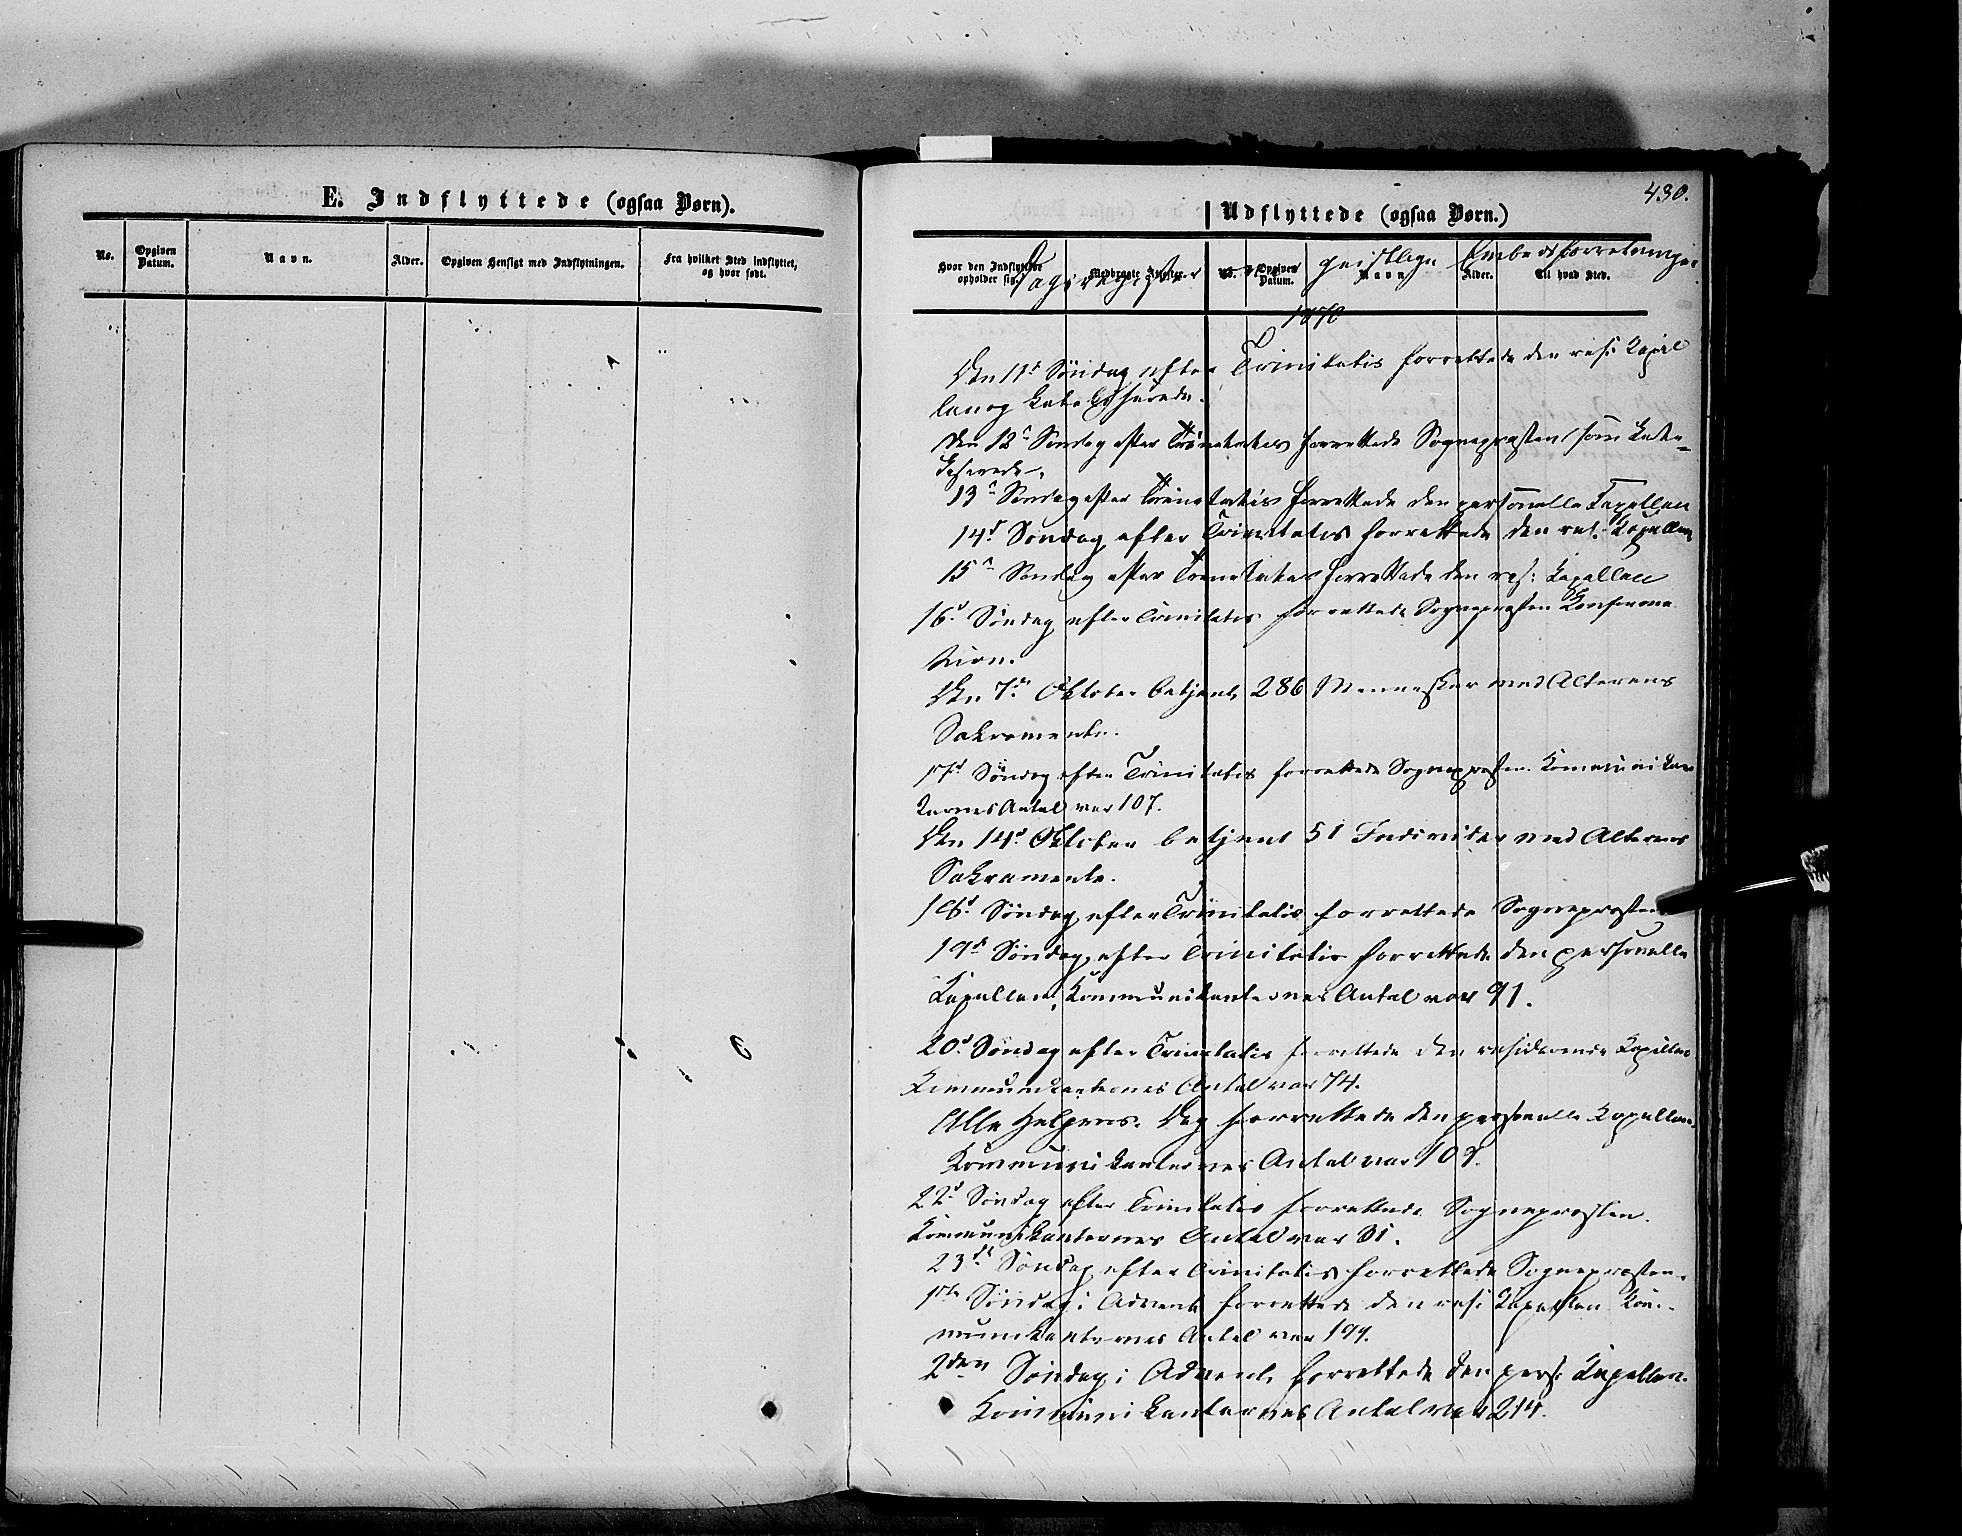 E. Indflyttede (ogsaa Børn).
No.
Opgiven Datum.
Navn.
Alder.
Opgiven Hensigt med Indflytningen.
Fra hvilket Sted indflyttet, og hvor født.
430.
Udflyttede (ogsaa Børn.)
Hvor den Indflyttede opholder sig.
Medbragte Attester.
No.
Opgiven Datum.
Navn.
Alder.
Til hvad Sted.
Dagsregister over geistlige Embedsforretninger
1870
Den 11te Søndag efter Trinitatis forrettede den res: Kapel
lan og katechiserede.
Den 12te Søndag efter Trinitatis forrettede Sognepræsten som kate-
kiserede.
13de Søndag efter Trinitatis forrettede den personelle Kapellan
14de Søndag efter Trinitatis forrettede den res. Kapellan
15de Søndag efter Trinitatis forrettede den res: Kapellan
16de Søndag efter Trinitatis forrettede Sognepræsten Konfirma
tion.
Den 7de Oktober betjent 286 Mennesker med Alterens
Sakramente.
17de Søndag efter Trinitatis forrettede Sognepræsten. Kommunikan
ternes Antal var 107.
Den 14de Oktober betjent 51 Individer med Alterens
Sakramente.
18de Søndag efter Trinitatis forrettede Sognepræsten
19de Søndag efter Trinitatis forrettede den personelle
Kapellan, Kommunikanternes Antal var 91.
20de Søndag efter Trinitatis forrettede den residerende Kapellan
Kommunikanternes Antal var 74.
Alle Helgens Dag forrettede den personelle Kapellan.
Kommunikanternes Antal var
22de Søndag efter Trinitatis forrettede Sognepræsten.
Kommunikanternes Antal var
23de Søndag efter Trinitatis forrettede Sognepræsten.
1ste Søndag i Advent forrettede den res: Kapellan Kom-
munikanternes Antal var
2den Søndag i Advent forrettede den pers: Kapellan.
Kommunikanternes Antal var 214.